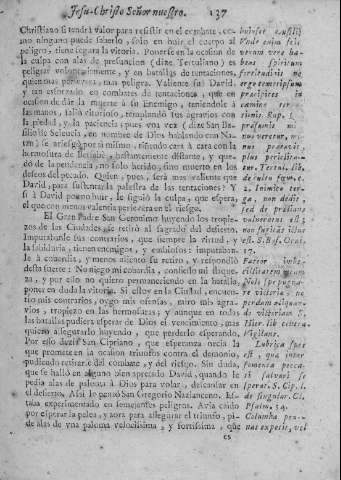 Jesu-Christo Señor nuestro. 137
Christiano si tendrá valor para resistir en el combate, co-
mo ninguno puede saberlo, solo en huir el cuerpo al
peligro, tiene segura la vitoria. Ponerse en la ocasion de
la culpa con alas de presuncion (dize Tertuliano) es
peligrar voluntariamente, y en batallas de tentaciones,
quien mas peligra. Valiente fue David,
y tan esforzado en combates de tentaciones, que en
ocasion de dàr la muerte à su Enemigo, teniendole à
las manos, salio vitorioso, templando sus agravios con
la piedad, y la paciencia; pues una vez (dize San Ba-
silio de Seleucia, en nombre de Dios hablando con Na-
tan) se arriesgò por si mismo, riñendo cara à cara con la
hermosura de Bersabè, bastantemente distante, y que-
dò de la pendencia, no solo herido, sino muerto en los
deseos del pecado. Quien, pues, será mas valiente que
David, para sustentar la palestra de las tentaciones? Y
si à David por no huir, le siguiò la culpa, que espera,
el que con menos valentia persevera en el riesgo.
El Gran Padre San Geronimo huyendo los trope-
zos de las Ciudades, se retirò al sagrado del desierto.
Imputabanle sus contrarios, que siempre la virtud, y
la sabiduria, tienen enemigos, y embidiosos: imputaban-
le à cobardia, y menos aliento su retiro, y respondiò
desta suerte: No niego mi cobardia, confieso mi flaque-
za, y por esso no quiero permaneciendo en la batalla,
poner en duda la vitoria. Si estoy en la Ciudad, encuen-
tro mis contrarios, oygo mis ofensas, miro mis agra-
vios, tropiezo en las hermosuras, y aunque en todas
las batallas pudiera esperar de Dios el vencimiento, mas
quiero assegurarlo huyendo, que perderlo esperando.
Por esso dezia San Cipriano, que esperança necia la
que promete en la ocasion triunfos contra el demonio,
pudiendo retirarse del combate, y del riesgo. Sin duda,
que se hallò en alguno bien apretado David, quando le
pedia alas de paloma à Dios para volar, descansar en
el desierto. Assi lo pensò San Gregorio Nazianceno. Es-
taba experimentado en semejantes peligros. Avia caido
por esperar la pelea, y aora para assegurar el triunfo, pi-
de alas de una paloma velocissima, y fortissima, que
es
Vade enim sit
verum vere ha-
bens spiritum
fortitudinis ne
ergo temeripsum
præcipites in
certamina ter-
timis. Sup. 1.
præsumit mi-
nus veretur, mi-
nus præcavet,
plus periclita-
tur. Tertul. lib.
2. Inimico ter-
ga, non dedit,
sed de proelians
vulneratus est;
non fugitur illuc
est. S. Bas. Orat.
17.
Fateor imbe-
cillitatem meam
Nolo spe pugna-
re victoria, ne
perdam aliquan-
do victoriam S.
Hier. lib. contra
Vigilanc.
Lubrica spes
est, qua inter
fomenta pecca-
ti salvari se
sperat. S. Cip. l.
de singular. Cl.
Psalm. 54.
Columba pen-
nas expetit, vel